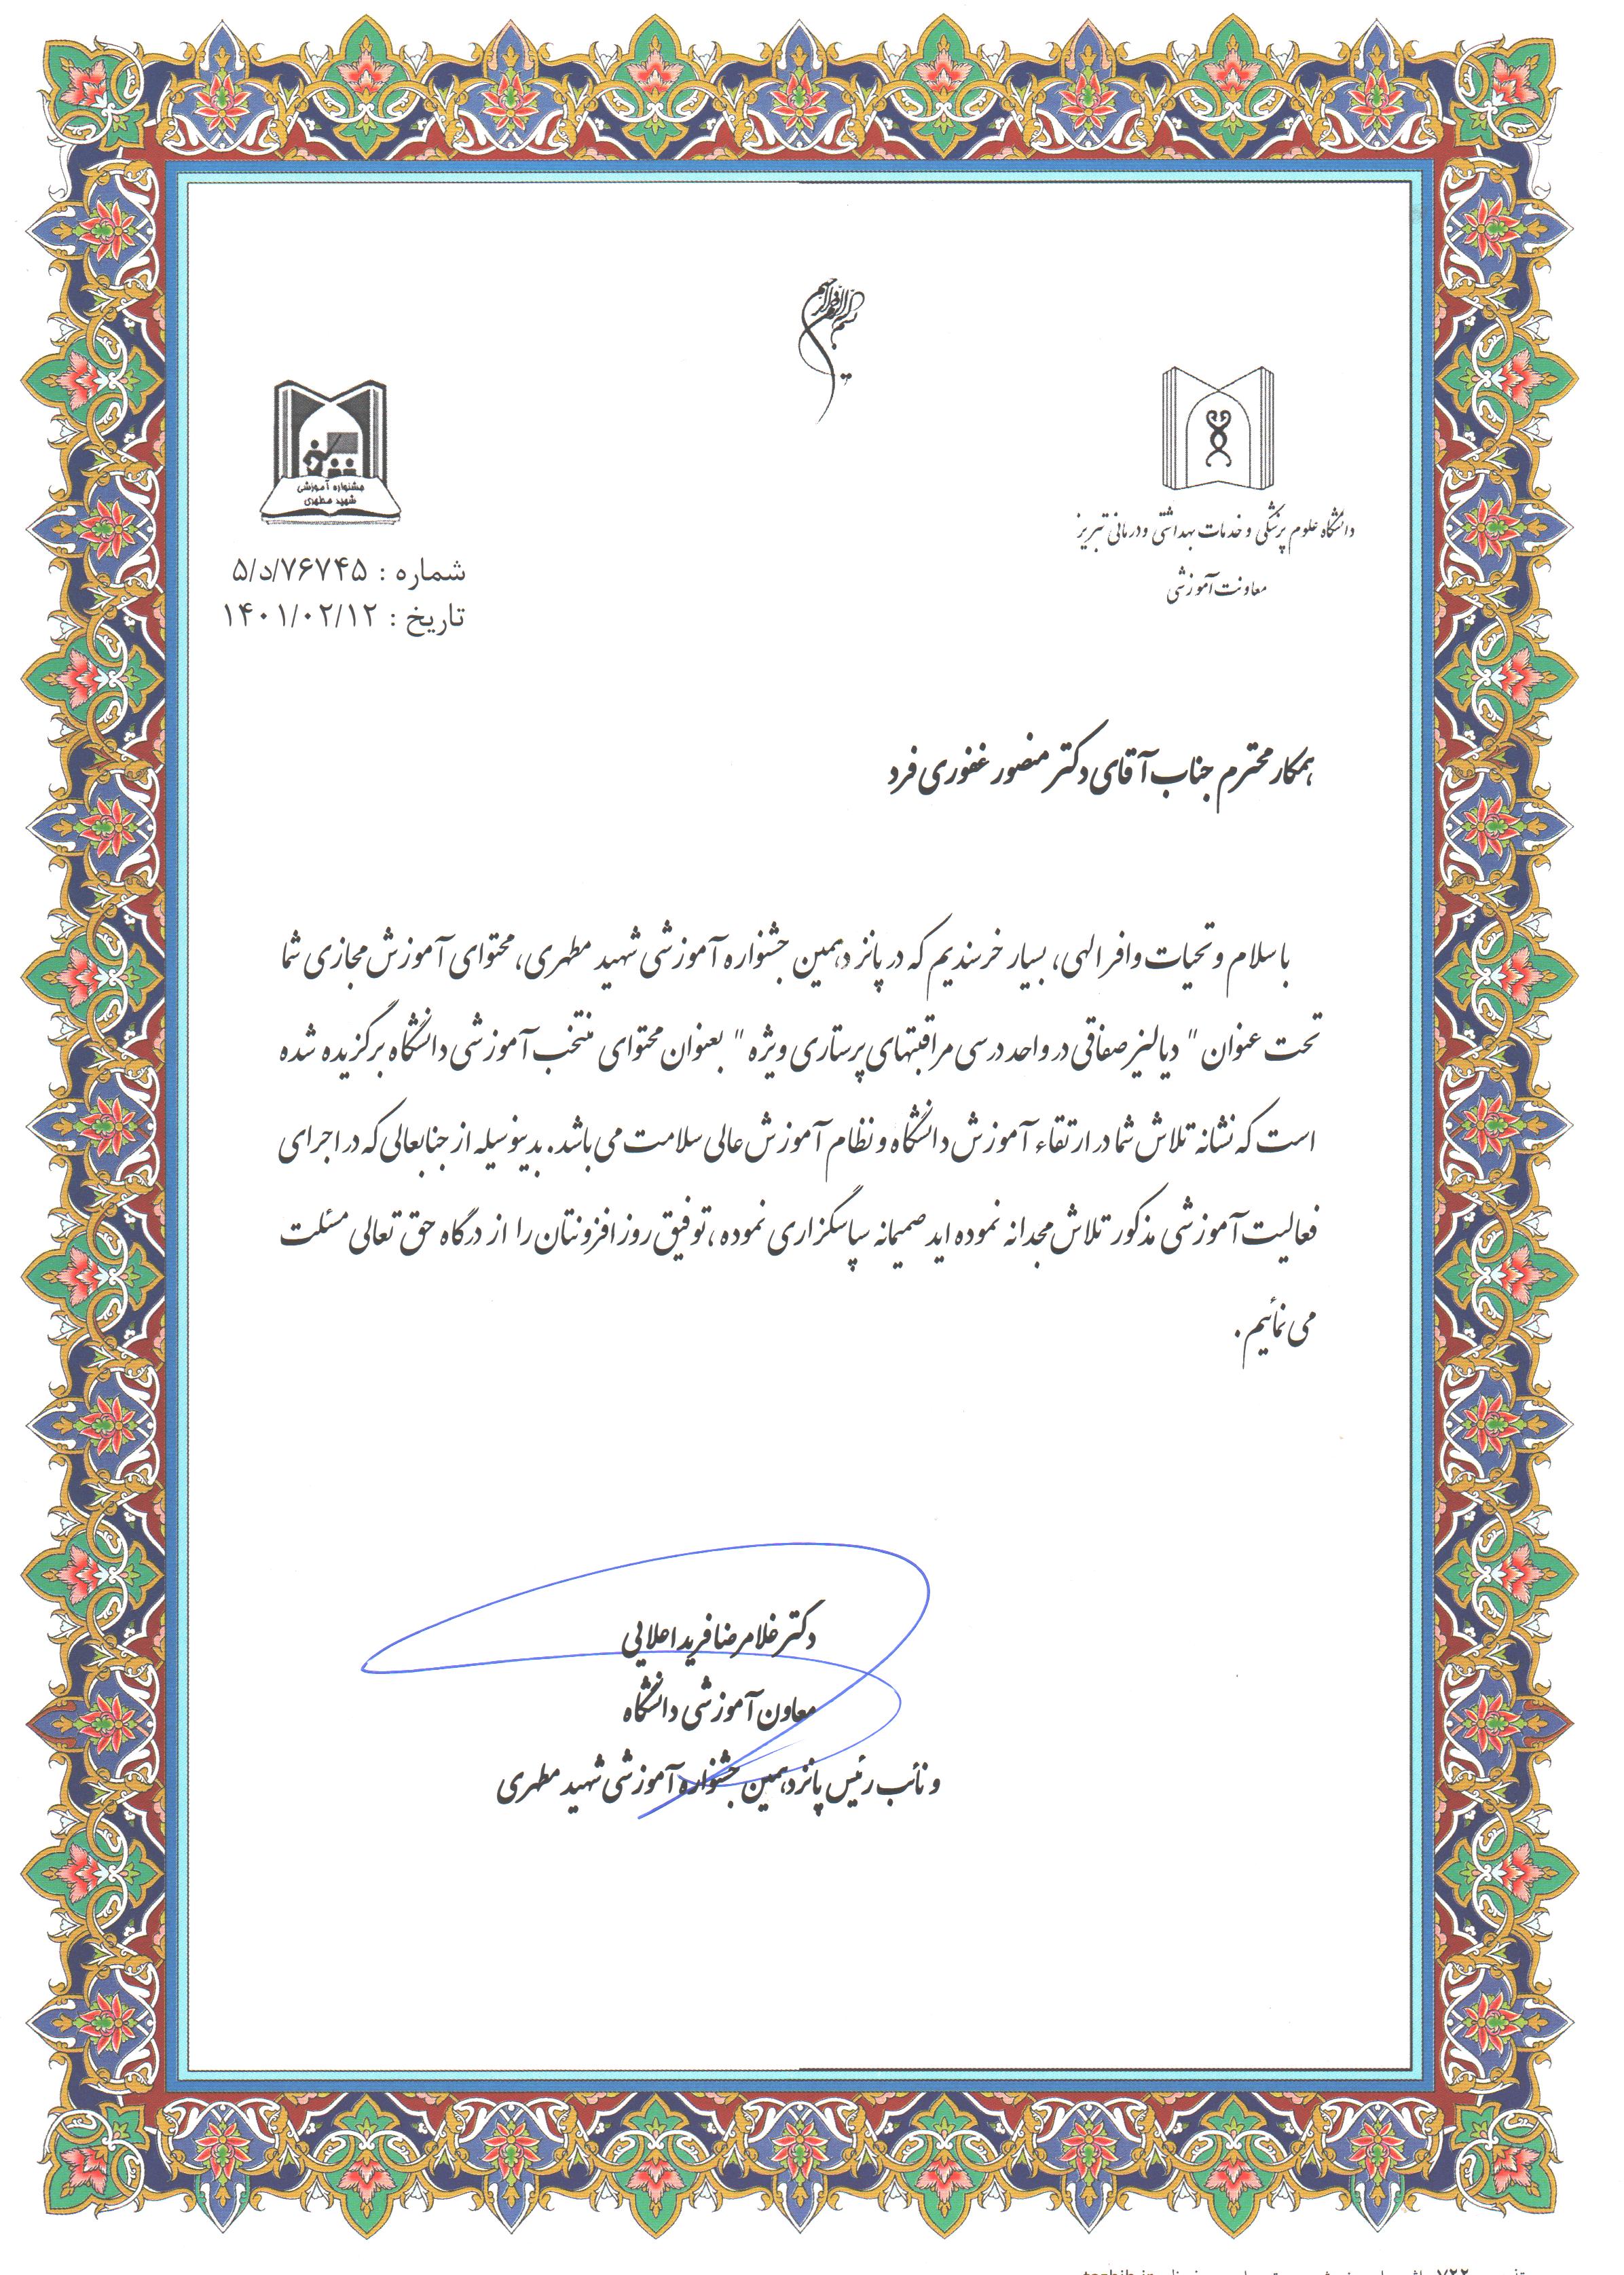 بسم الله الرحمن الرحیم
دانشگاه علوم پزشکی و خدمات بهداشتی و درمانی تبریز
معاونت آموزشی
جشنواره آموزشی
شهید مطهری
شماره : ۵/د/۷۶۷۴۵
تاریخ : ۱۴۰۱/۰۲/۱۲
همکار محترم جناب آقای دکتر منصور غفوری فرد
با سلام و تحیات وافر الهی، بسیار خرسندیم که در پانزدهمین جشنواره آموزشی شهید مطهری، محتوای آموزش مجازی شما
تحت عنوان " دیالیز صفاقی در واحد درسی مراقبتهای پرستاری ویژه " بعنوان محتوای منتخب آموزشی دانشگاه برگزیده شده
است که نشانه تلاش شما در ارتقاء آموزش دانشگاه و نظام آموزش عالی سلامت می باشد. بدینوسیله از جنابعالی که در اجرای
فعالیت آموزشی مذکور تلاش مجدانه نموده اید صمیمانه سپاسگزاری نموده ، توفیق روز افزونتان را از درگاه حق تعالی مسئلت
می نمائیم .
دکتر غلامرضا فرید اعلایی
معاون آموزشی دانشگاه
و نائب رئیس پانزدهمین جشنواره آموزشی شهید مطهری